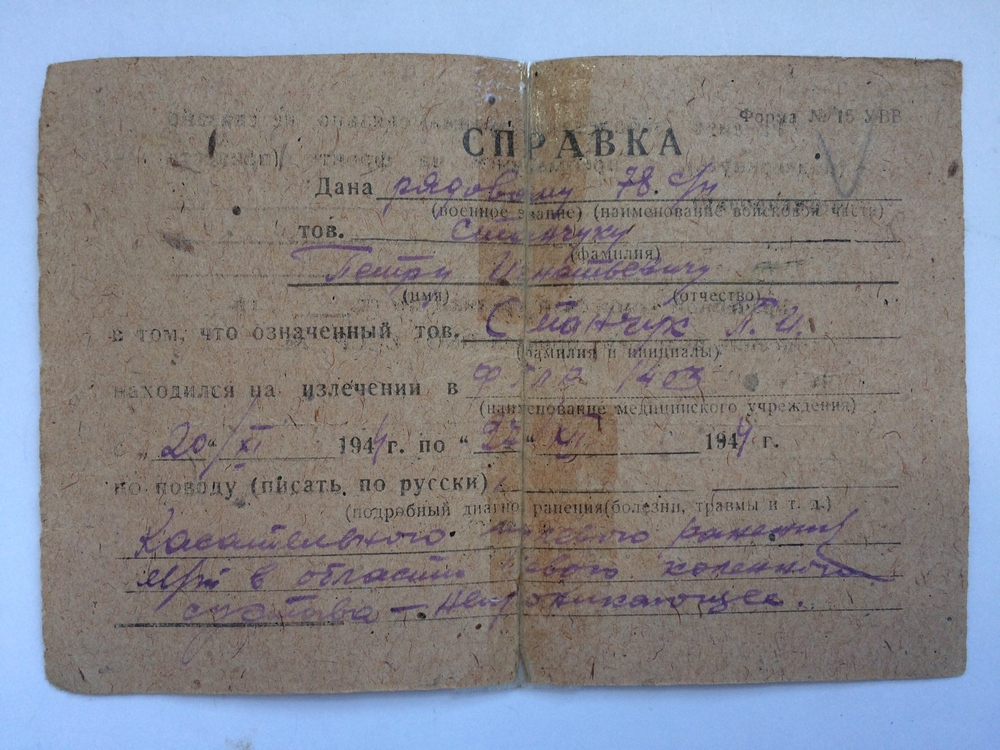 Форма № 16 УВВ
СПРАВКА
Дана рядовому 78. с/п
(военное звание) (наименование войсковой части)
тов. Станчуку
(фамилия)
Петру Игнатьевичу
(имя) (отчество)
в том, что означенный тов. Станчук П. И.
(фамилия и инициалы)
находился на излечении в 1403
(наименование медицинского учреждения)
с „20“/XI 1944 г. по “22“ XII 1944 г.
по поводу (писать по русски)
(подробный диагноз ранения (болезни, травмы и т. д.)
Касательного ранения
в области левого коленного
сустава — непроникающее.